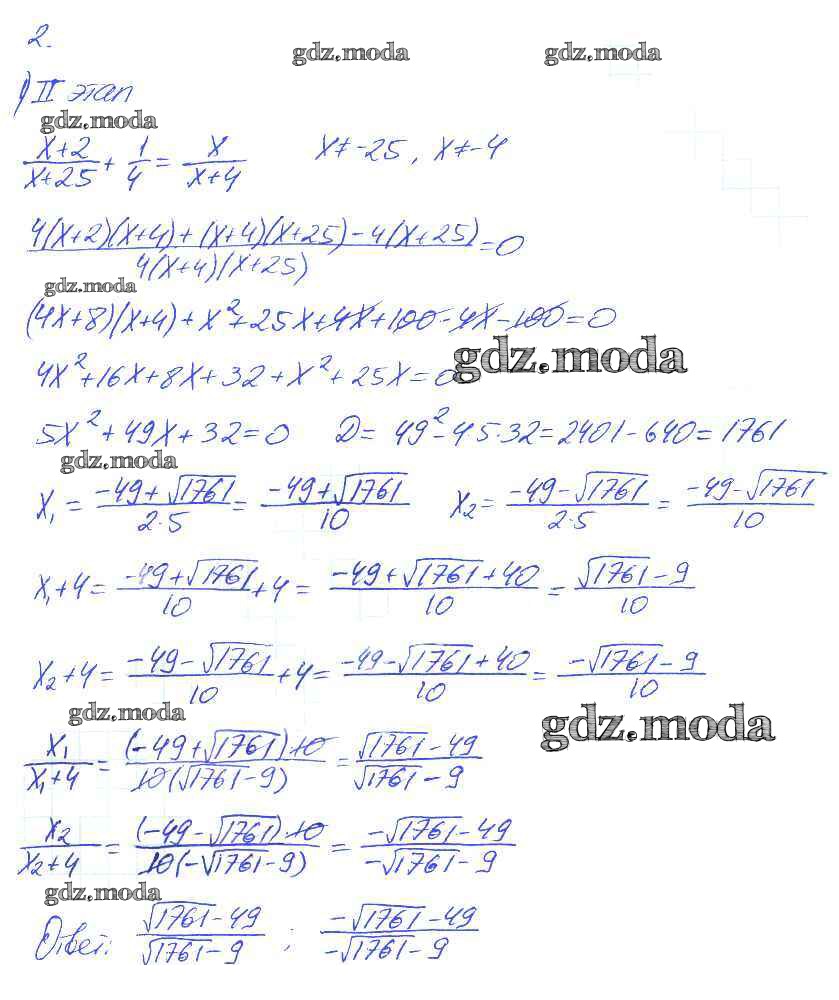 2.
gdz.moda gdz.moda
1) II этап
gdz.moda
(x+2)/(x+25) + 1/4 = x/(x+4)   x≠-25, x≠-4
(4(x+2)(x+4)+(x+4)(x+25)-4(x+25))/(4(x+4)(x+25)) = 0
gdz.moda
(4x+8)(x+4)+x²+25x+4x+100-4x-100=0
gdz.moda
4x²+16x+8x+32+x²+25x=0
5x²+49x+32=0   D= 49²-4·5·32=2401-640=1761
gdz.moda
x₁ = (-49+√1761)/(2·5) = (-49+√1761)/10   x₂ = (-49-√1761)/(2·5) = (-49-√1761)/10
x₁+4 = (-49+√1761)/10 + 4 = (-49+√1761+40)/10 = (√1761-9)/10
x₂+4 = (-49-√1761)/10 + 4 = (-49-√1761+40)/10 = (-√1761-9)/10
gdz.moda gdz.moda
x₁/(x₁+4) = ((-49+√1761)·10)/(10(√1761-9)) = (√1761-49)/(√1761-9)
x₂/(x₂+4) = ((-49-√1761)·10)/(10(-√1761-9)) = (-√1761-49)/(-√1761-9)
gdz.moda
Ответ: (√1761-49)/(√1761-9) ; (-√1761-49)/(-√1761-9)